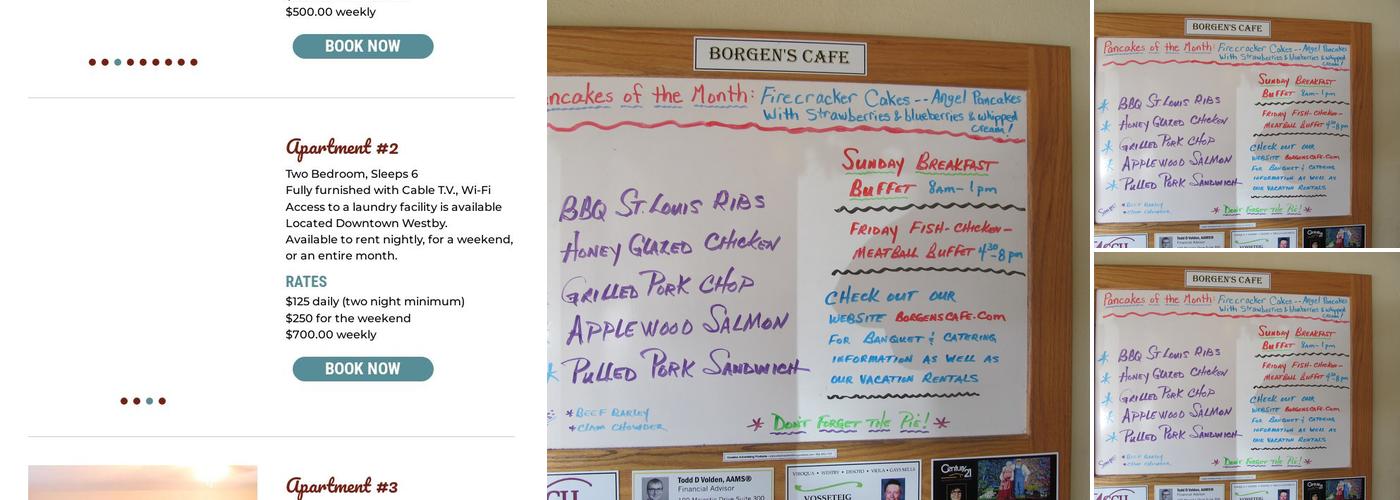 $500.00 weekly
BOOK NOW
Apartment #2
Two Bedroom, Sleeps 6
Fully furnished with Cable T.V., Wi-Fi
Access to a laundry facility is available
Located Downtown Westby.
Available to rent nightly, for a weekend,
or an entire month.
RATES
$125 daily (two night minimum)
$250 for the weekend
$700.00 weekly
BOOK NOW
Apartment #3
BORGEN'S CAFE
ncakes of the Month: Firecracker Cakes -- Angel Pancakes
With Strawberries & blueberries & whipped
cream!
BBQ St. Louis Ribs
Honey Glazed Chicken
Grilled Pork Chop
Applewood Salmon
Pulled Pork Sandwich
* Beef Barley
* Clam Chowder
Sunday Breakfast
Buffet 8am-1pm
Friday Fish-Chicken-
Meatball Buffet 4:30-8pm
Check out our
website Borgenscafe.com
for Banquet & catering
information as well as
our vacation rentals
* Don't Forget the Pie! *
Todd D Volden, AAMS®
Financial Advisor
100 Majestic Drive Suite 300
VIROQUA • WESTBY • DESOTO • VIOLA • GAYS MILLS
VOSSETEIG
Century 21
BORGEN'S CAFE
Pancakes of the Month: Firecracker Cakes -- Angel Pancakes
With Strawberries & blueberries & whipped
cream!
* BBQ St. Louis Ribs
* Honey Glazed Chicken
* Grilled Pork Chop
* Applewood Salmon
* Pulled Pork Sandwich
Soups:
* Beef Barley
* Clam Chowder
Sunday Breakfast
Buffet 8am-1pm
Friday Fish-Chicken-
Meatball Buffet 4:30-8pm
Check out our
website Borgenscafe.com
for Banquet & catering
information as well as
our vacation rentals
* Don't Forget the Pie! *
Todd D Volden, AAMS®
Financial Advisor
BORGEN'S CAFE
Pancakes of the Month: Firecracker Cakes -- Angel Pancakes
With Strawberries & blueberries & whipped
cream!
* BBQ St. Louis Ribs
* Honey Glazed Chicken
* Grilled Pork Chop
* Applewood Salmon
* Pulled Pork Sandwich
Soups:
* Beef Barley
* Clam Chowder
Sunday Breakfast
Buffet 8am-1pm
Friday Fish-Chicken-
Meatball Buffet 4:30-8pm
Check out our
website Borgenscafe.com
for Banquet & catering
information as well as
our vacation rentals
* Don't Forget the Pie! *
Todd D Volden, AAMS®
Financial Advisor